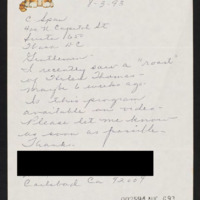 8-3-93
C Span
400 N Capitol St
Suite 650
Wash DC
Gentlemen
I recently saw a "road"
of Thomas
Maybe 6 weeks ago.
Is this program
available on video-
Please let me know
as soon as possible.
Thank.
Carlsbad Ca 92009